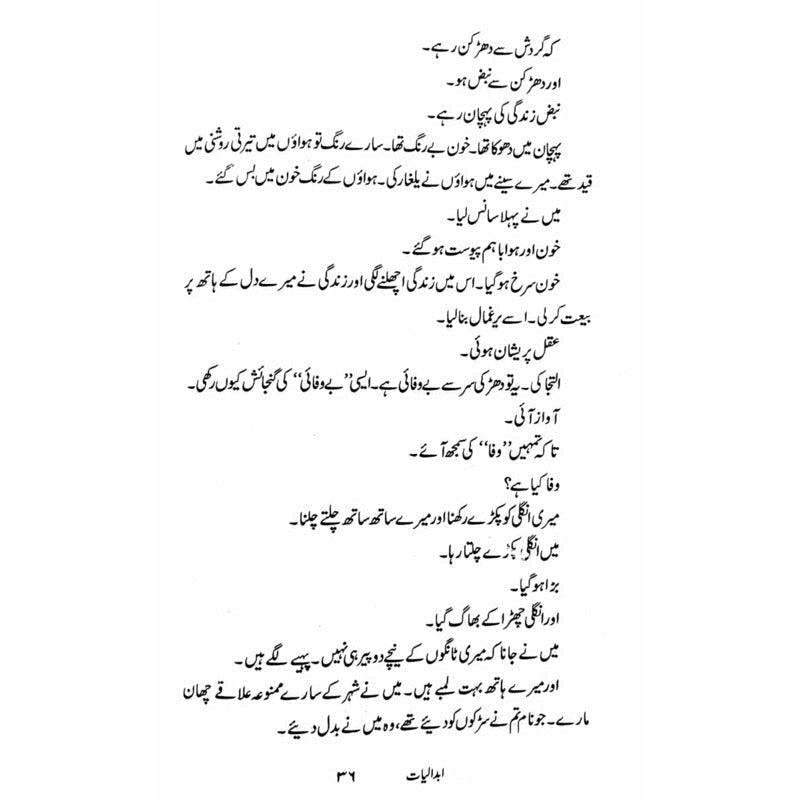 کہ گردش سے دھڑکن رہے۔
اور دھڑکن سے نبض ہو۔
نبض زندگی کی پہچان رہے۔
پہچان میں دھوکا تھا۔ خون بے رنگ تھا۔ سارے رنگ تو ہواؤں میں تیرتی روشنی میں
قید تھے۔ میرے سینے میں ہواؤں نے یلغار کی۔ ہواؤں کے رنگ خون میں بس گئے۔
میں نے پہلا سانس لیا۔
خون اور ہوا باہم پیوست ہو گئے۔
خون سرخ ہو گیا۔ اس میں زندگی اچھلنے لگی اور زندگی نے میرے دل کے ہاتھ پر
بیعت کر لی۔ اسے یرغمال بنا لیا۔
عقل پریشان ہوئی۔
التجا کی۔ یہ تو دھڑ کی سر سے بے وفائی ہے۔ ایسی ’’بے وفائی‘‘ کی گنجائش کیوں رکھی۔
آواز آئی۔
تا کہ تمہیں ’’وفا‘‘ کی سمجھ آئے۔
وفا کیا ہے؟
میری انگلی کو پکڑے رکھنا اور میرے ساتھ ساتھ چلتے چلنا۔
میں انگلی پکڑے چلتا رہا۔
بڑا ہو گیا۔
اور انگلی چھڑا کے بھاگ گیا۔
میں نے جانا کہ میری ٹانگوں کے نیچے دو پیر ہی نہیں۔ پہیے لگے ہیں۔
اور میرے ہاتھ بہت لمبے ہیں۔ میں نے شہر کے سارے ممنوعہ علاقے چھان
مارے۔ جو نام تم نے سڑکوں کو دیئے تھے، وہ میں نے بدل دیئے۔
ابدالیات ۳۶